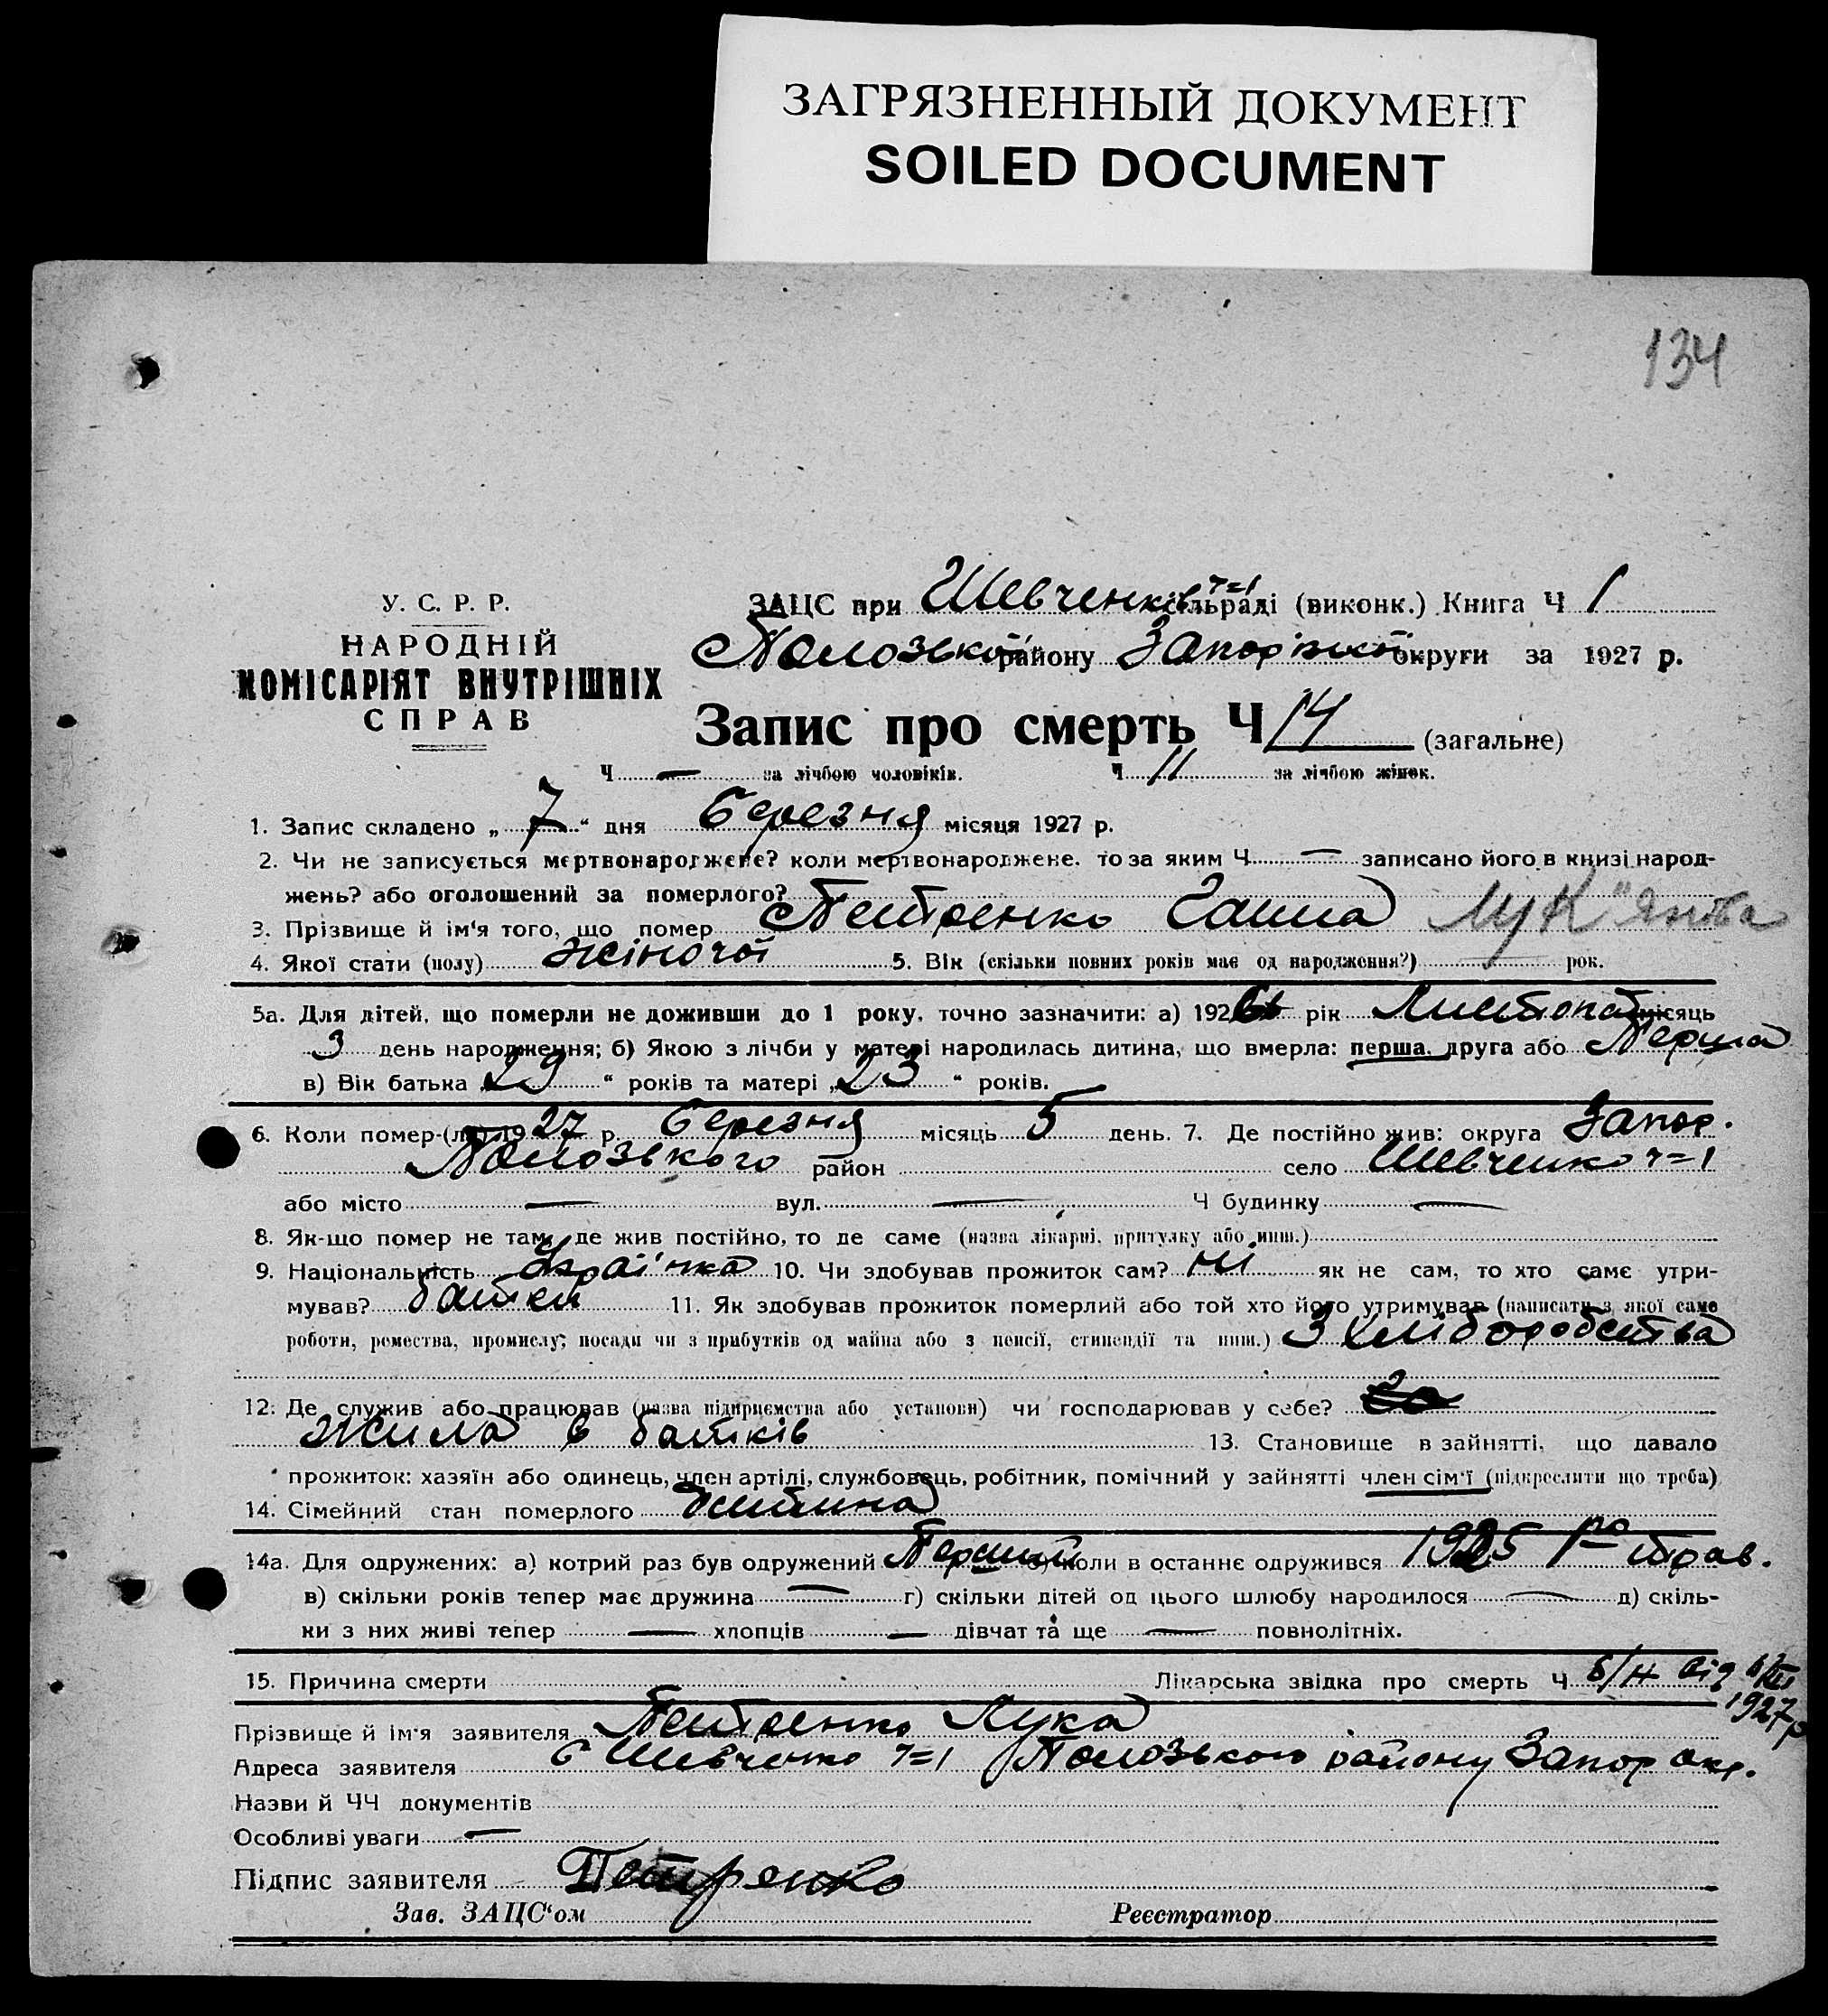 ЗАГРЯЗНЕННЫЙ ДОКУМЕНТ
SOILED DOCUMENT
134
У. С. Р. Р.
НАРОДНІЙ
КОМІСАРІЯТ ВНУТРІШНІХ
СПРАВ
ЗАЦС при Шевченків ч=1 сільраді (виконк.) Книга Ч 1
Полозької району Запоріжкої округи за 1927 р.
Запис про смерть Ч 14 (загальне)
Ч — за лічбою чоловіків. Ч 11 за лічбою жінок.
1. Запис складено „ 7 “ дня березня місяця 1927 р.
2. Чи не записується мертвонароджене? коли мертвонароджене. то за яким Ч — записано його в книзі народ-
жень? або оголошений за померлого?
3. Прізвище й ім‘я того, що помер Петренко Ганна Лук"янова
4. Якої стати (полу) жіночої 5. Вік (скільки повних років має од народження?) — рок.
5а. Для дітей, що померли не доживши до 1 року, точно зазначити: а) 1926 рік Листопад місяць
3 день народження; б) Якою з лічби у матері народилась дитина, що вмерла: перша, друга або Перша
в) Вік батька „ 29 “ років та матері „ 23 “ років.
6. Коли помер-(ла) 1927 р. березня місяць 5 день. 7. Де постійно жив: округа Запор.
Полозького район село Шевченко ч=1
або місто — вул. — Ч будинку —
8. Як-що помер не там, де жив постійно, то де саме (назва лікарні, притулку або инш.)
9. Національність Украі'нка 10. Чи здобував прожиток сам? Ні як не сам, то хто саме утри-
мував? батьки 11. Як здобував прожиток померлий або той хто його утримував (написати з якої саме
роботи, ремества, промислу; посади чи з прибутків од майна або з пенсії, стипендії та инш.) З хліборобства
12. Де служив або працював (назва підприємства або установи) чи господарював у себе?
Жила в батьків 13. Становище в зайнятті, що давало
прожиток: хазяїн або одинець, член артілі, службовець, робітник, помічний у зайнятті член сім‘ї (підкреслити що треба)
14. Сімейний стан померлого дитина
14а. Для одружених: а) котрий раз був одружений Перший б) коли в останнє одружився 1925 1го трав.
в) скільки років тепер має дружина — г) скільки дітей од цього шлюбу народилося — д) скіль-
ки з них живі тепер — хлопців — дівчат та ще — повнолітніх.
15. Причина смерти Лікарська звідка про смерть Ч б/н від
1927 р
Прізвище й ім‘я заявителя Петренко Лука
Адреса заявителя с Шевченко ч=1 Полозького району Запор окр.
Назви й ЧЧ документів
Особливі уваги —
Підпис заявителя Петренко
Зав. ЗАЦС‘ом Реєстратор